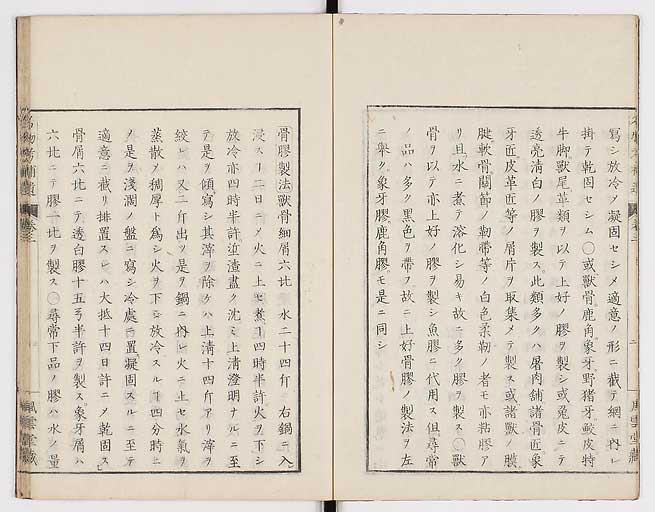 寫シ放冷ノ凝固セシメ適意ノ形ニ截テ網ニ內レ
掛テ乾固セシム〇或獸骨鹿角象牙野猪牙鮫皮特
牛脚獸尾革類ヲ以テ上好ノ膠ヲ製シ或兎皮ニテ
透亮淸白ノ膠ヲ製ス此類多クハ屠肉舖諸骨匠象
牙匠皮革匠等ノ屑片ヲ取集メテ製ス或諸獸ノ膜
腱軟骨關節ノ靭帶等ノ白色柔靭ノ者モ亦粘膠ア
リ且水ニ煮テ溶化シ易キ故ニ多ク膠ヲ製ス〇獸
骨ヲ以テ亦上好ノ膠ヲ製シ魚膠ニ代用ス但尋常
ノ品ハ多ク黑色ヲ帶フ故ニ上好骨膠ノ製法ヲ左
ニ擧ク象牙膠鹿角膠モ是ニ同シ
骨膠製法獸骨細屑六比 水二十四斤 右鍋ニ入
浸スヿ二日ニメ火ニ上セ煮ヿ四時半許火ヲ下シ
放冷亦四時半許渣盡ク沈ミ上淸澄明ナルニ至
テ是ヲ傾寫シ其滓ヲ除ケハ上淸十四斤アリ滓ヲ
絞レハ又二斤出ツ是ヲ鍋ニ內レ火ニ上セ水氣ヲ
蒸散メ稠厚ト爲シ火ヲ下シ放冷スルヿ四分時ニ
ノ是ヲ淺濶ノ盤ニ寫シ冷處ニ置凝固スルニ至テ
適意ニ截リ排置スレハ大抵十四日許ニメ乾固ス
骨屑六比ニテ透白膠十五ヲ半許ヲ製ス象牙屑ハ
六比ニテ膠一比ヲ製ス〇尋常下品ノ膠ハ水ノ量
名物考補遺 卷三
風雲堂藏